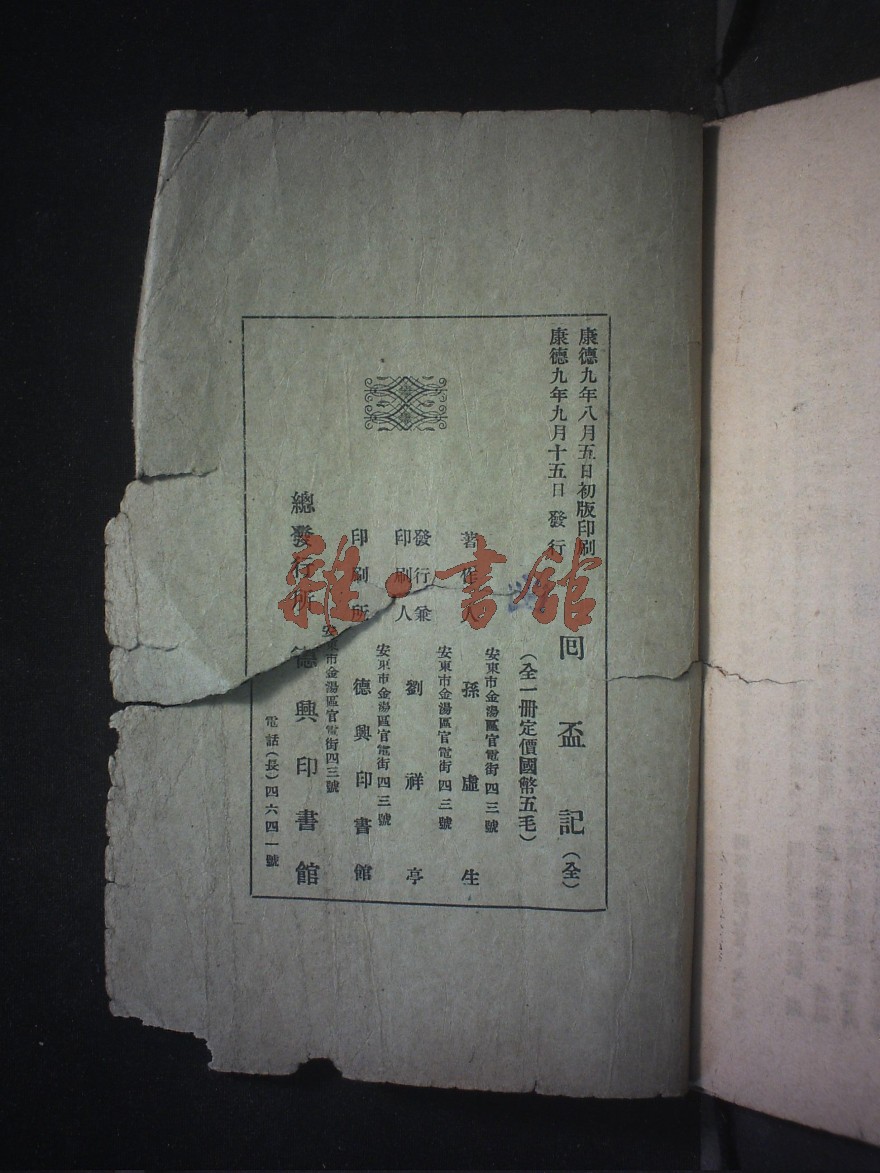 康德九年八月五日初版印刷
康德九年九月十五日發行
回盃記(全)
(全一冊定價國幣五毛)
安東市金湯區官電街四三號
著作人 孫虛生
安東市金湯區官電街四三號
發行兼印刷人 劉祥亭
安東市金湯區官電街四三號
印刷所 德興印書館
安東市金湯區官電街四三號
總發行所 德興印書館
電話(長)四六四一號
雜·書館